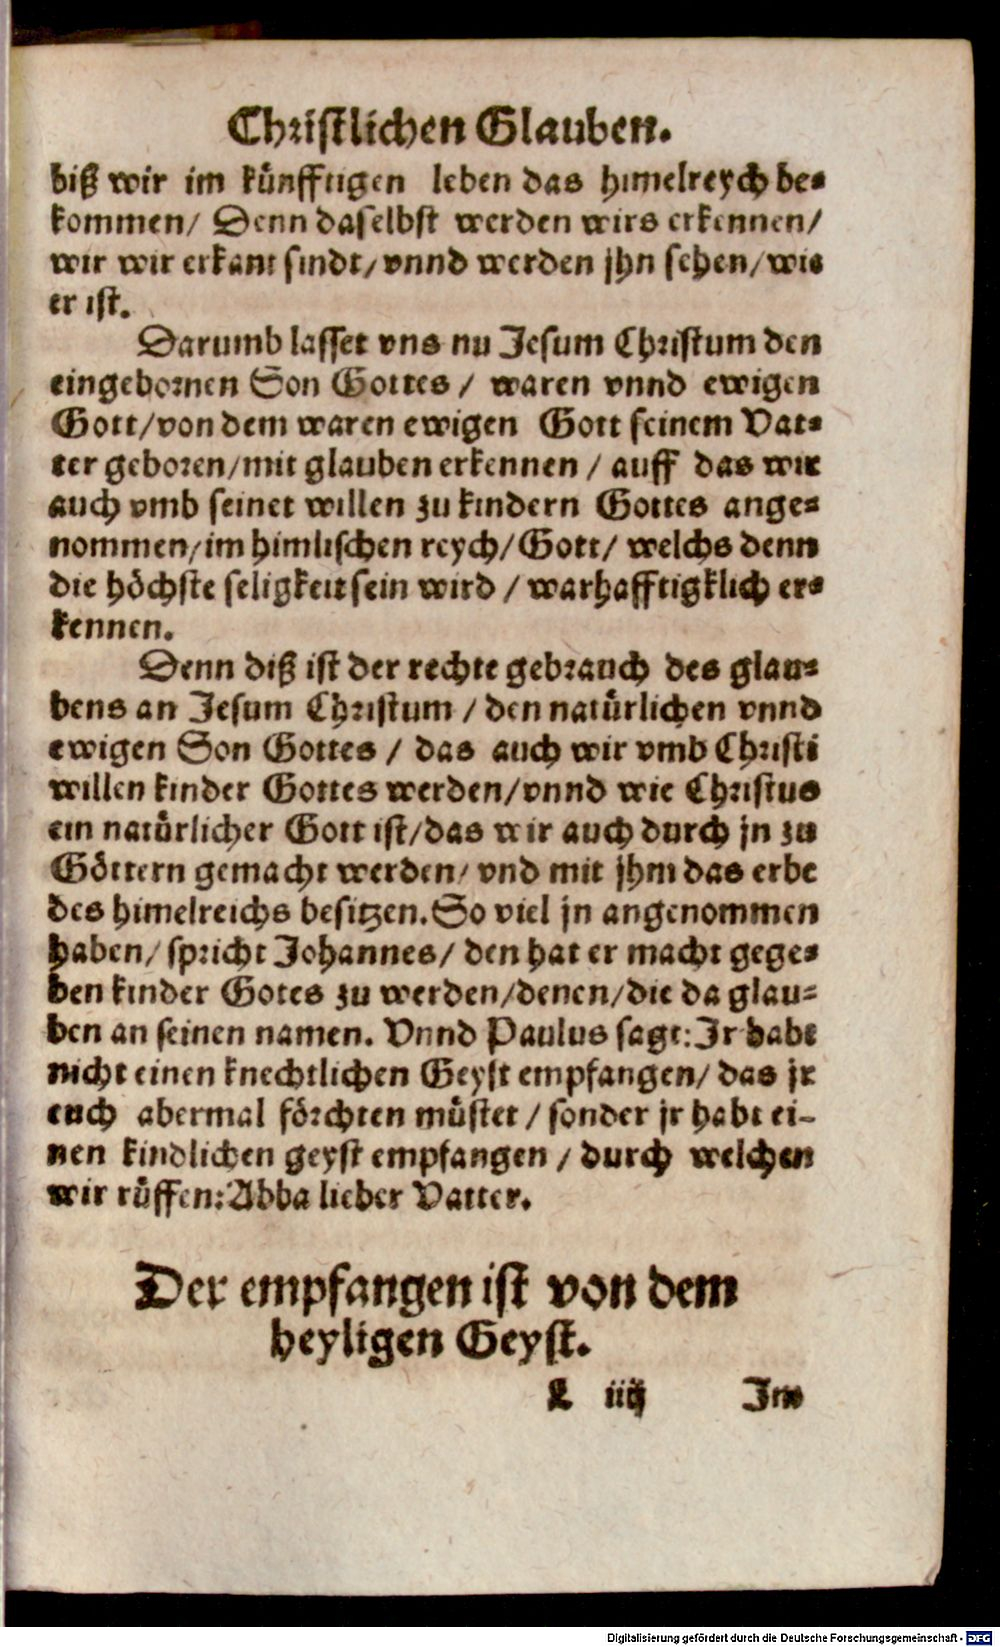 Christlichen Glauben.
biß wir im künfftigen leben das himelreych be-
kommen/ Denn daselbst werden wirs erkennen/
wir wir erkant sindt/ vnnd werden jhn sehen/ wie
er ist.
Darumb lasset vns nu Jesum Christum den
eingebornen Son Gottes / waren vnnd ewigen
Gott/ von dem waren ewigen Gott seinem Vat-
ter geboren/ mit glauben erkennen / auff das wir
auch vmb seinet willen zu kindern Gottes ange-
nommen/ im himlischen reych/ Gott/ welchs denn
die höchste seligkeit sein wird / warhafftigklich er-
kennen.
Denn diß ist der rechte gebrauch des glau-
bens an Jesum Christum / den natürlichen vnnd
ewigen Son Gottes / das auch wir vmb Christi
willen kinder Gottes werden/ vnnd wie Christus
ein natürlicher Gott ist/ das wir auch durch jn zu
Göttern gemacht werden/ vnd mit jhm das erbe
des himelreichs besitzen. So viel jn angenommen
haben/ spricht Johannes/ den hat er macht gege-
ben kinder Gotes zu werden/ denen/ die da glau-
ben an seinen namen. Vnnd Paulus sagt: Jr habt
nicht einen knechtlichen Geyst empfangen/ das jr
euch abermal förchten müstet / sonder jr habt ei-
nen kindlichen geyst empfangen / durch welchen
wir rüffen: Abba lieber Vatter.
Der empfangen ist von dem
heyligen Geyst.
L iiij Jnn
Digitalisierung gefördert durch die Deutsche Forschungsgemeinschaft - DFG